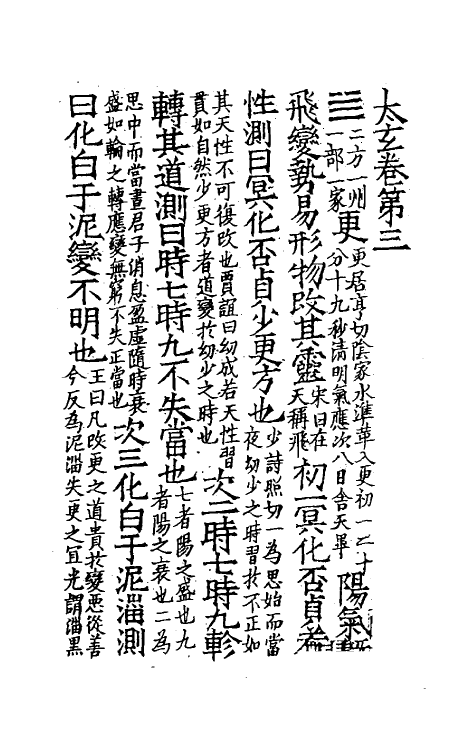 太玄卷第三
二方一州一部一家更更居亨切陰家水準革入更初一二十分十九秒清明氣應次八日舍天畢陽氣
飛變勢易形物改其靈宋曰在天稱飛初一冥化否貞
性測曰冥化否貞少更方也少詩照切一為思始而當夜幼少之時習於不正如
其天性不可復改也賈誼曰幼成若天性習貫如自然少更方者道變於幼少之時也次二時七時九軫
轉其道測曰時七時九不失當也七者陽之盛也九者陽之衰也二為
思中而當晝君子消息盈虛隨時衰盛如輪之轉應變無窮不失正當也次三化白于泥淄測
曰化白于泥變不明也王曰凡改更之道貴於變惡從善今反為泥淄失更之宜光謂淄黑